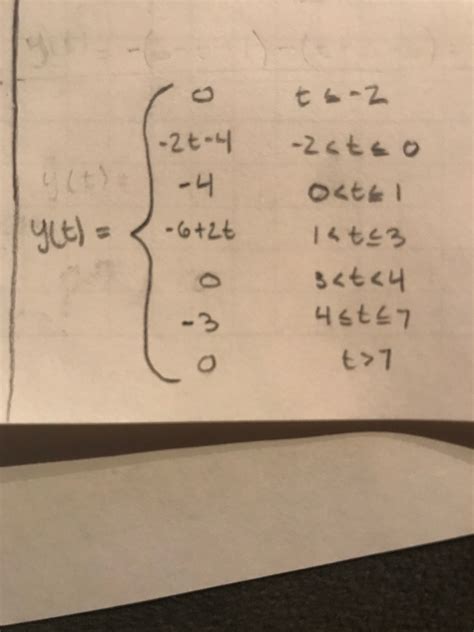 0 t ≤ -2
-2t-4 -2<t≤0
-4 0<t≤1
y(t)= -6+2t 1<t≤3
0 3<t<4
-3 4≤t≤7
0 t>7